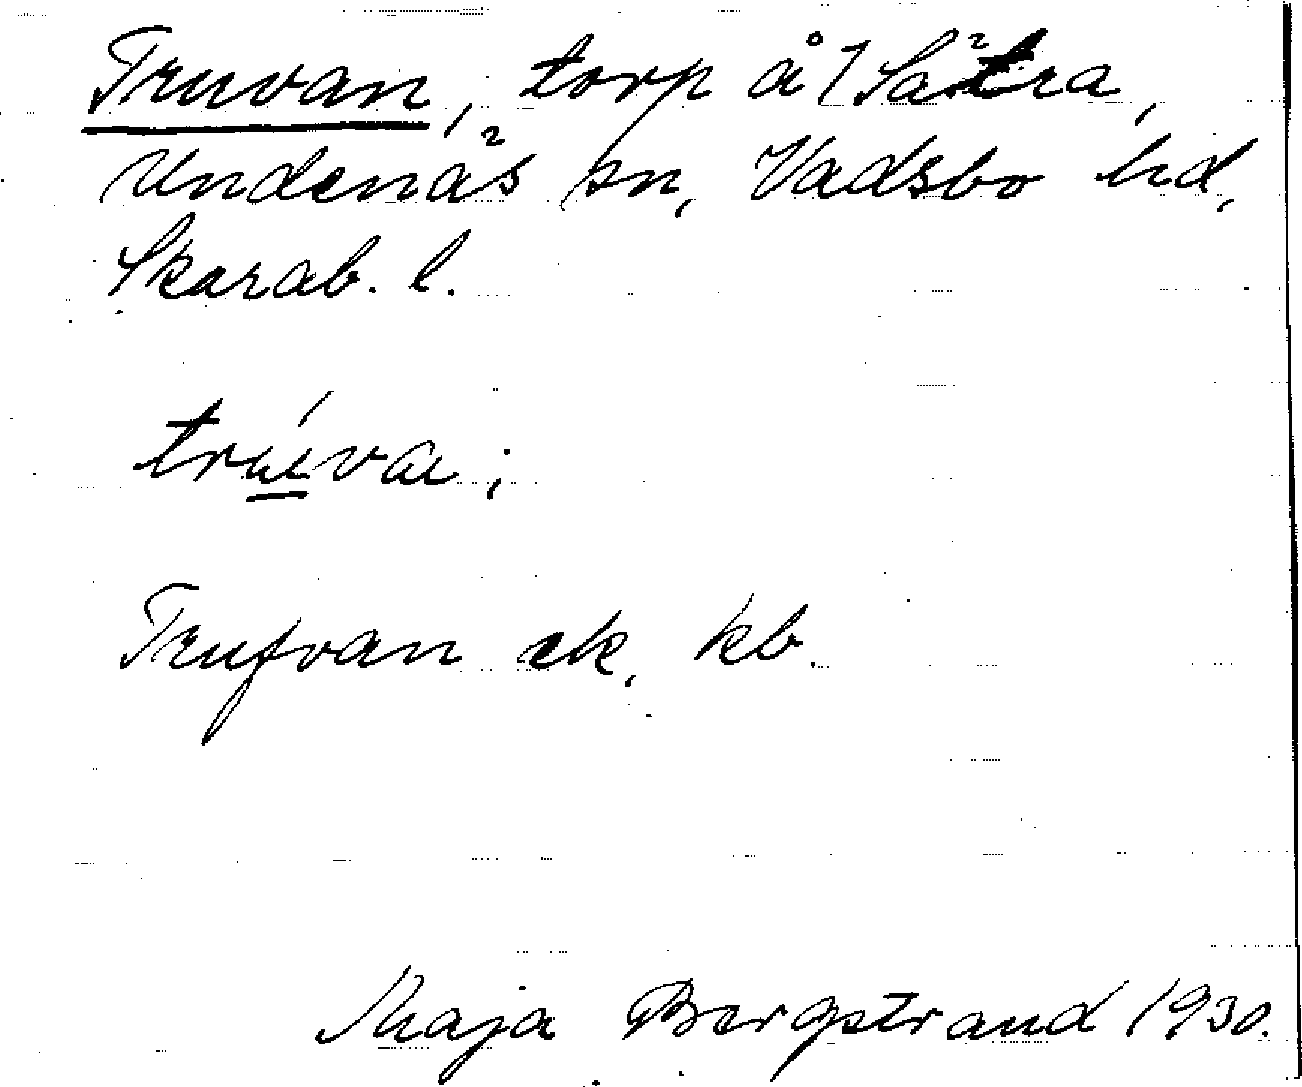 Truvan, torp å 7 Sätra,
Undenäs sn, Vadsbo hd,
Skarab. l.
trúva;
Trufvan ek, kb.
Maja Bergstrand 1930.